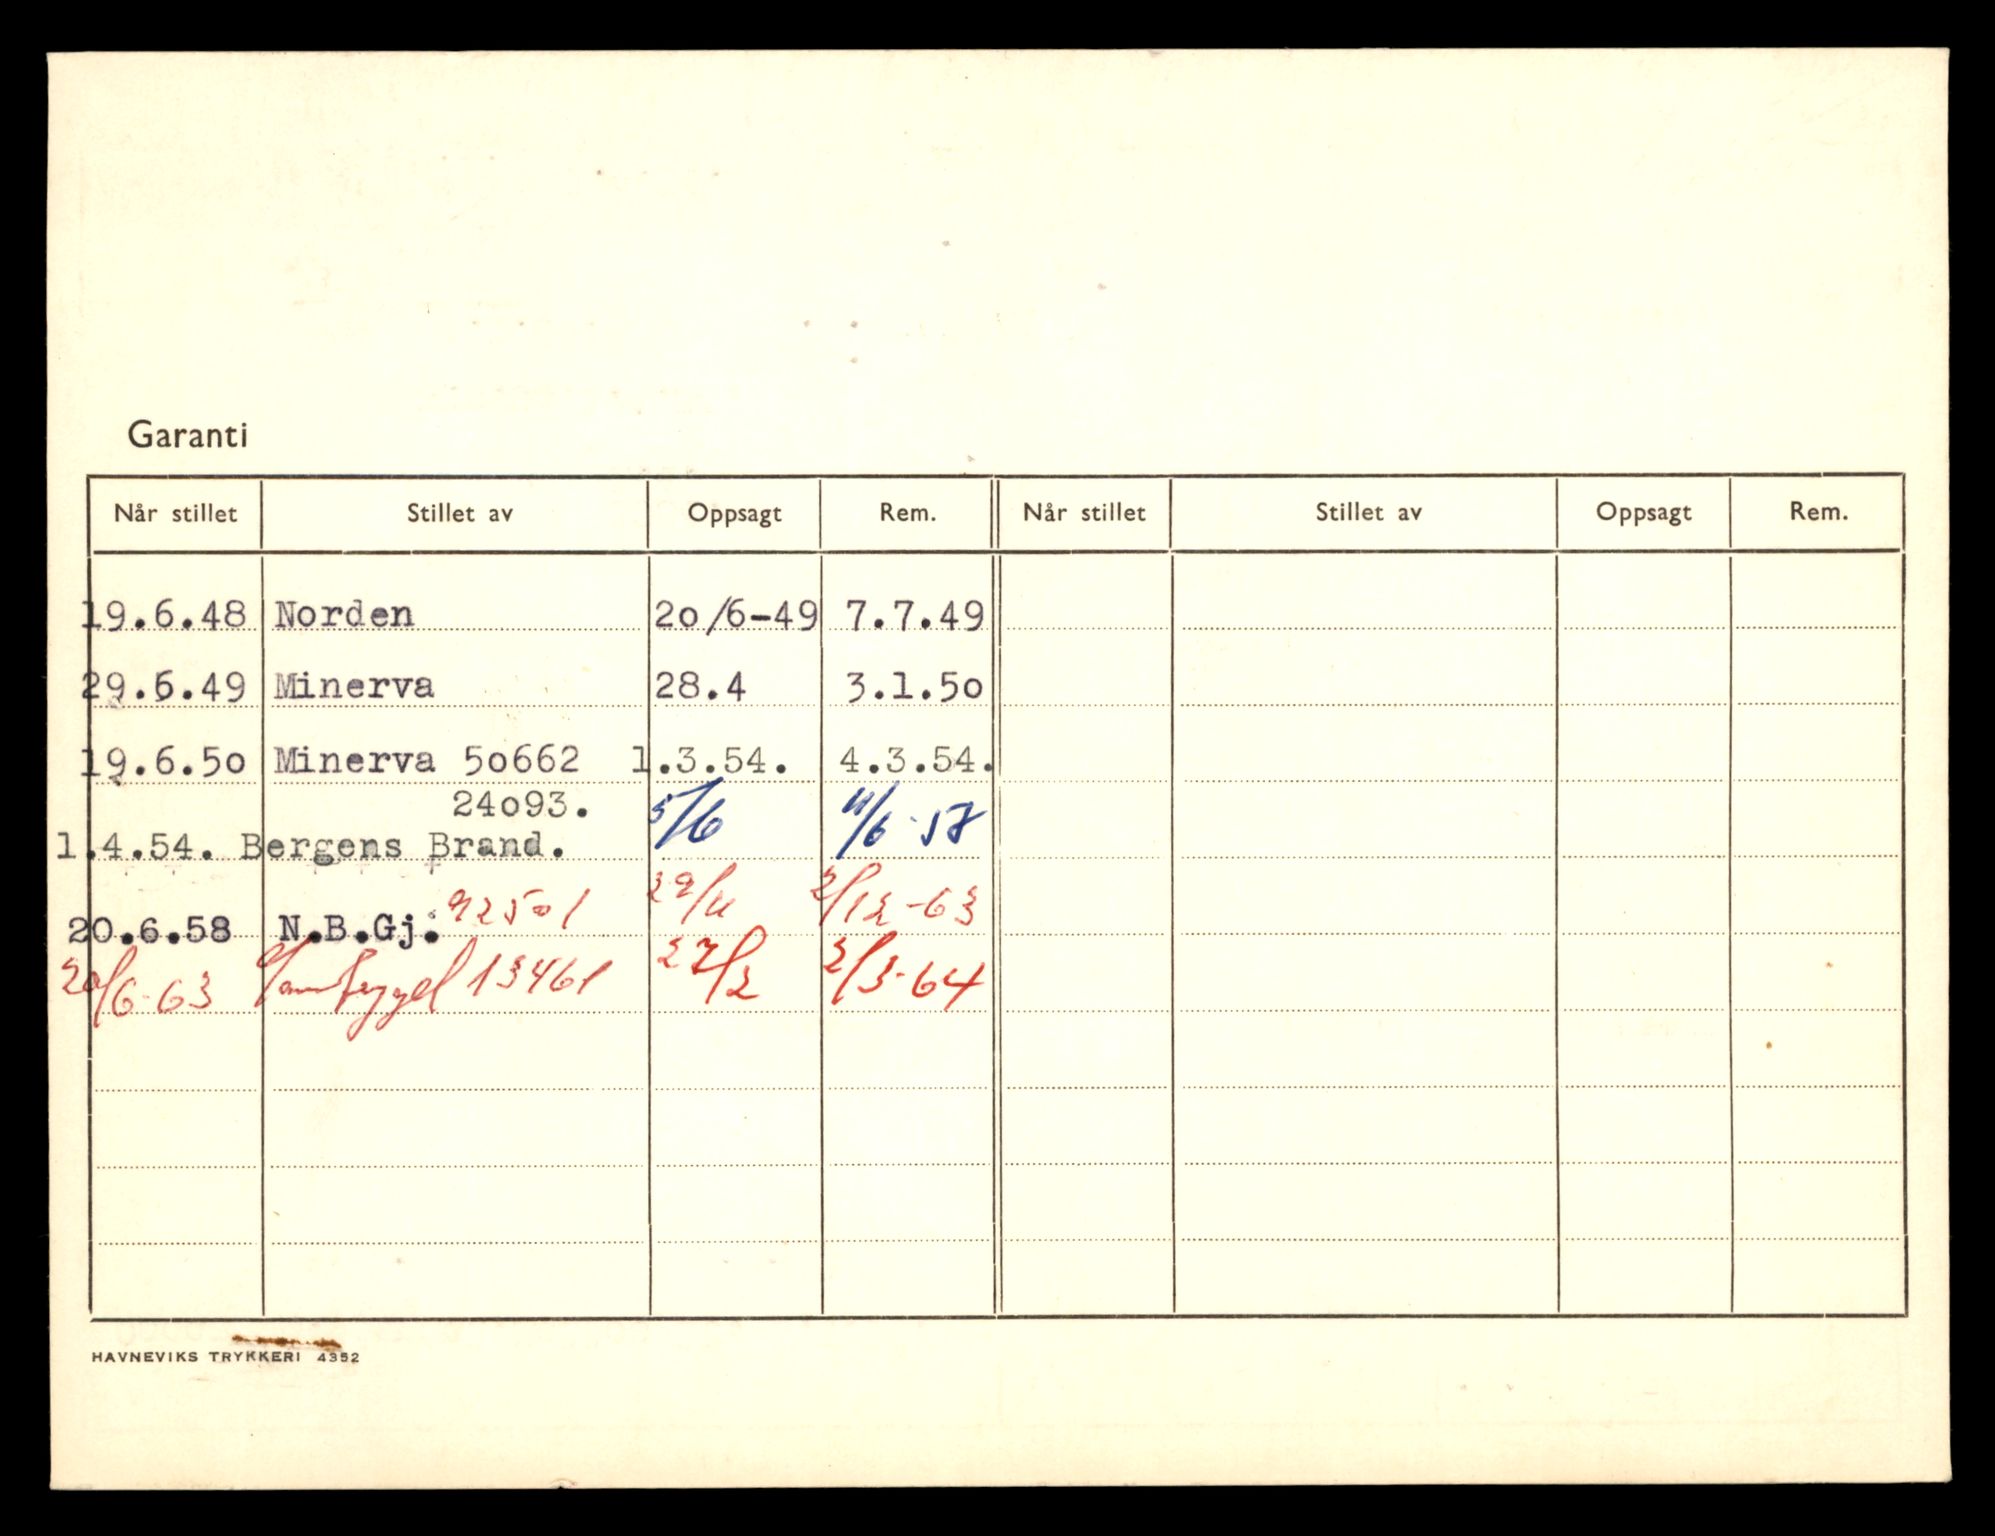 Garanti
Når stillet Stillet av Oppsagt Rem. Når stillet Stillet av Oppsagt Rem.
19.6.48 Norden 2o/6-49 7.7.49
29.6.49 Minerva 28.4 3.1.5o
19.6.5o Minerva 5o662 1.3.54. 4.3.54.
24o93. 5/6 11/6-57
1.4.54. Bergens Brand.
20.6.58 N.B.Gj. 92501 29/11 2/12-63
20/6-63 Samtrygd 13461 27/2 2/3-64
HAVNEVIKS TRYKKERI 4352